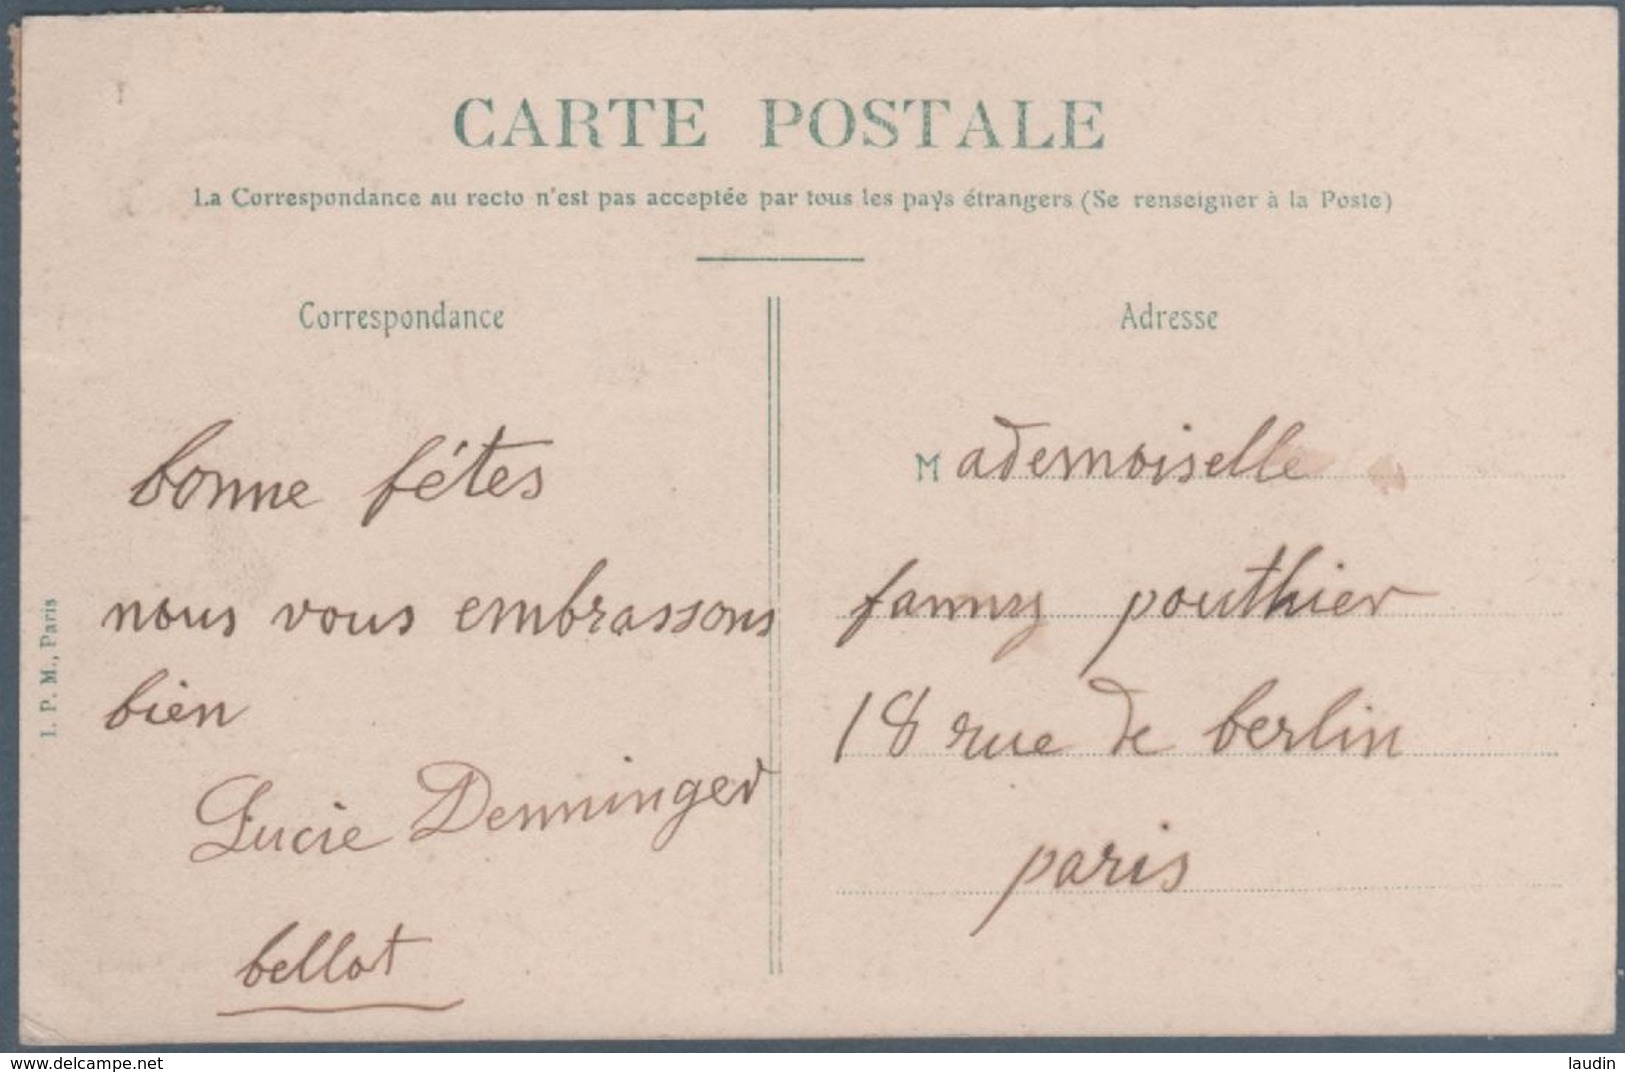 CARTE POSTALE
La Correspondance au recto n'est pas acceptée par tous les pays étrangers (Se renseigner à la Poste)
Correspondance
bonne fétes
nous vous embrassons
bien
Lucie Denninger
bellot
Adresse
Mademoiselle
fanny pouthier
18 rue de berlin
paris
I. P. M., Paris
www.delcampe.net
laudin